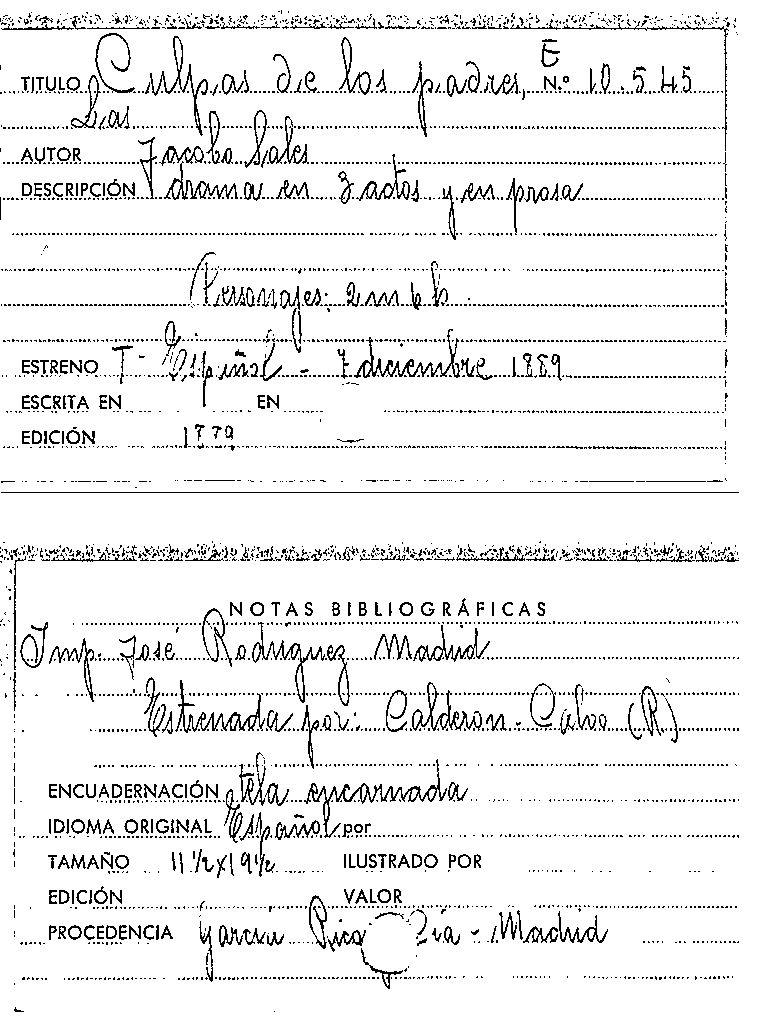 E
TITULO Culpas de los padres, N.º 10.545
Las
AUTOR Jacobo Sales
DESCRIPCIÓN drama en 3 actos y en prosa
Personajes: 2 m 6 h.
ESTRENO T- Español - 7 diciembre 1889
ESCRITA EN EN
EDICIÓN 1889
NOTAS BIBLIOGRÁFICAS
Imp. José Rodríguez Madrid
Estrenada por: Calderon - Calvo (R)
ENCUADERNACIÓN tela encarnada
IDIOMA ORIGINAL Español por
TAMAÑO 11 1/2 x 19 1/2 ILUSTRADO POR
EDICIÓN VALOR
PROCEDENCIA García Rico Cía - Madrid